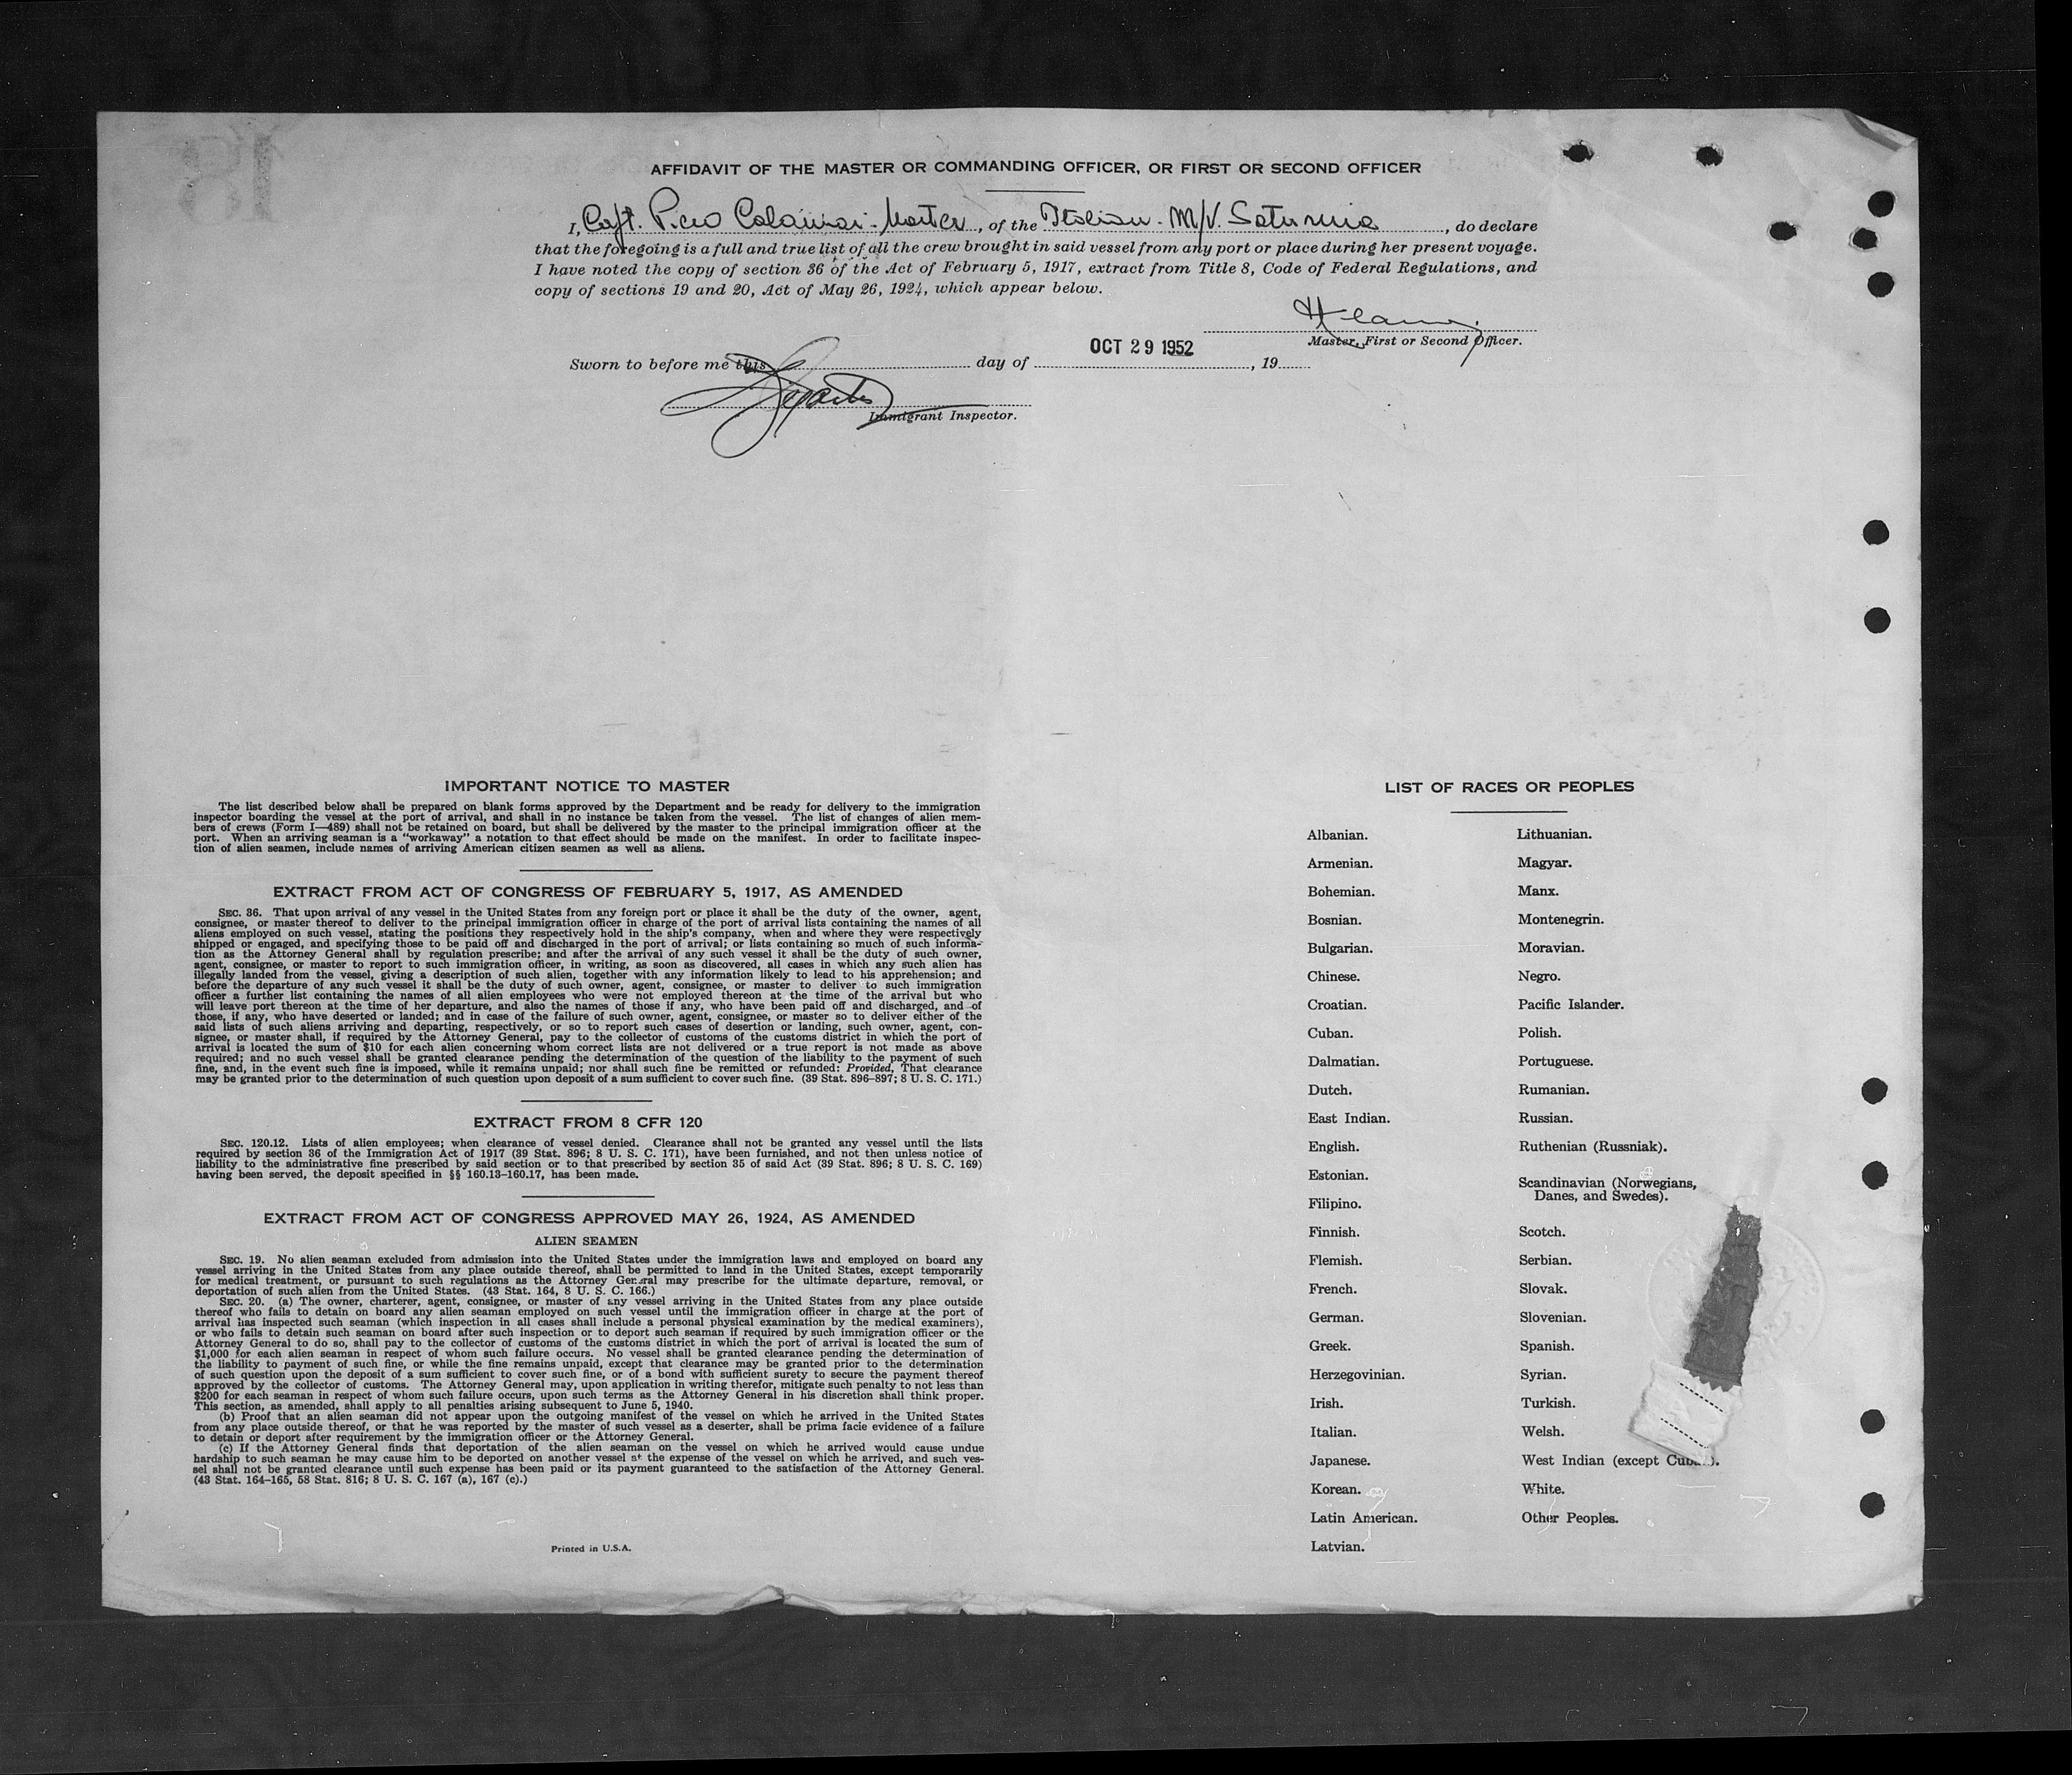 AFFIDAVIT OF THE MASTER OR COMMANDING OFFICER, OR FIRST OR SECOND OFFICER
I, Capt. Piero Calamai - Master, of the Italian - M/V. Saturnia, do declare
that the foregoing is a full and true list of all the crew brought in said vessel from any port or place during her present voyage.
I have noted the copy of section 36 of the Act of February 5, 1917, extract from Title 8, Code of Federal Regulations, and
copy of sections 19 and 20, Act of May 26, 1924, which appear below.
Master, First or Second Officer.
OCT 29 1952
Sworn to before me this day of , 19
Immigrant Inspector.
IMPORTANT NOTICE TO MASTER
The list described below shall be prepared on blank forms approved by the Department and be ready for delivery to the immigration
inspector boarding the vessel at the port of arrival, and shall in no instance be taken from the vessel. The list of changes of alien mem-
bers of crews (Form I—489) shall not be retained on board, but shall be delivered by the master to the principal immigration officer at the
port. When an arriving seaman is a "workaway" a notation to that effect should be made on the manifest. In order to facilitate inspec-
tion of alien seamen, include names of arriving American citizen seamen as well as aliens.
EXTRACT FROM ACT OF CONGRESS OF FEBRUARY 5, 1917, AS AMENDED
SEC. 36. That upon arrival of any vessel in the United States from any foreign port or place it shall be the duty of the owner, agent,
consignee, or master thereof to deliver to the principal immigration officer in charge of the port of arrival lists containing the names of all
aliens employed on such vessel, stating the positions they respectively hold in the ship's company, when and where they were respectively
shipped or engaged, and specifying those to be paid off and discharged in the port of arrival; or lists containing so much of such informa-
tion as the Attorney General shall by regulation prescribe; and after the arrival of any such vessel it shall be the duty of such owner,
agent, consignee, or master to report to such immigration officer, in writing, as soon as discovered, all cases in which any such alien has
illegally landed from the vessel, giving a description of such alien, together with any information likely to lead to his apprehension; and
before the departure of any such vessel it shall be the duty of such owner, agent, consignee, or master to deliver to such immigration
officer a further list containing the names of all alien employees who were not employed thereon at the time of the arrival but who
will leave port thereon at the time of her departure, and also the names of those if any, who have been paid off and discharged, and of
those, if any, who have deserted or landed; and in case of the failure of such owner, agent, consignee, or master so to deliver either of the
said lists of such aliens arriving and departing, respectively, or so to report such cases of desertion or landing, such owner, agent, con-
signee, or master shall, if required by the Attorney General, pay to the collector of customs of the customs district in which the port of
arrival is located the sum of $10 for each alien concerning whom correct lists are not delivered or a true report is not made as above
required; and no such vessel shall be granted clearance pending the determination of the question of the liability to the payment of such
fine, and, in the event such fine is imposed, while it remains unpaid; nor shall such fine be remitted or refunded: Provided, That clearance
may be granted prior to the determination of such question upon deposit of a sum sufficient to cover such fine. (39 Stat. 896–897; 8 U. S. C. 171.)
EXTRACT FROM 8 CFR 120
SEC. 120.12. Lists of alien employees; when clearance of vessel denied. Clearance shall not be granted any vessel until the lists
required by section 36 of the Immigration Act of 1917 (39 Stat. 896; 8 U. S. C. 171), have been furnished, and not then unless notice of
liability to the administrative fine prescribed by said section or to that prescribed by section 35 of said Act (39 Stat. 896; 8 U. S. C. 169)
having been served, the deposit specified in §§ 160.13–160.17, has been made.
EXTRACT FROM ACT OF CONGRESS APPROVED MAY 26, 1924, AS AMENDED
ALIEN SEAMEN
SEC. 19. No alien seaman excluded from admission into the United States under the immigration laws and employed on board any
vessel arriving in the United States from any place outside thereof, shall be permitted to land in the United States, except temporarily
for medical treatment, or pursuant to such regulations as the Attorney General may prescribe for the ultimate departure, removal, or
deportation of such alien from the United States. (43 Stat. 164, 8 U. S. C. 166.)
SEC. 20. (a) The owner, charterer, agent, consignee, or master of any vessel arriving in the United States from any place outside
thereof who fails to detain on board any alien seaman employed on such vessel until the immigration officer in charge at the port of
arrival has inspected such seaman (which inspection in all cases shall include a personal physical examination by the medical examiners),
or who fails to detain such seaman on board after such inspection or to deport such seaman if required by such immigration officer or the
Attorney General to do so, shall pay to the collector of customs of the customs district in which the port of arrival is located the sum of
$1,000 for each alien seaman in respect of whom such failure occurs. No vessel shall be granted clearance pending the determination of
the liability to payment of such fine, or while the fine remains unpaid, except that clearance may be granted prior to the determination
of such question upon the deposit of a sum sufficient to cover such fine, or of a bond with sufficient surety to secure the payment thereof
approved by the collector of customs. The Attorney General may, upon application in writing therefor, mitigate such penalty to not less than
$200 for each seaman in respect of whom such failure occurs, upon such terms as the Attorney General in his discretion shall think proper.
This section, as amended, shall apply to all penalties arising subsequent to June 5, 1940.
(b) Proof that an alien seaman did not appear upon the outgoing manifest of the vessel on which he arrived in the United States
from any place outside thereof, or that he was reported by the master of such vessel as a deserter, shall be prima facie evidence of a failure
to detain or deport after requirement by the immigration officer or the Attorney General.
(c) If the Attorney General finds that deportation of the alien seaman on the vessel on which he arrived would cause undue
hardship to such seaman he may cause him to be deported on another vessel at the expense of the vessel on which he arrived, and such ves-
sel shall not be granted clearance until such expense has been paid or its payment guaranteed to the satisfaction of the Attorney General.
(43 Stat. 164–165, 58 Stat. 816; 8 U. S. C. 167 (a), 167 (c).)
Printed in U.S.A.
LIST OF RACES OR PEOPLES
Albanian.
Armenian.
Bohemian.
Bosnian.
Bulgarian.
Chinese.
Croatian.
Cuban.
Dalmatian.
Dutch.
East Indian.
English.
Estonian.
Filipino.
Finnish.
Flemish.
French.
German.
Greek.
Herzegovinian.
Irish.
Italian.
Japanese.
Korean.
Latin American.
Latvian.
Lithuanian.
Magyar.
Manx.
Montenegrin.
Moravian.
Negro.
Pacific Islander.
Polish.
Portuguese.
Rumanian.
Russian.
Ruthenian (Russniak).
Scandinavian (Norwegians,
Danes, and Swedes).
Scotch.
Serbian.
Slovak.
Slovenian.
Spanish.
Syrian.
Turkish.
Welsh.
West Indian (except
White.
Other Peoples.